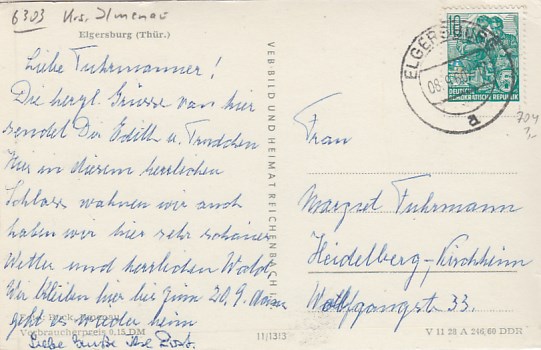 6303 Krs. Ilmenau
Elgersburg (Thür.)
Liebe Fuhrmanner!
Die herzl. Grüsse von hier
sendet Dir Edith u.
Hier in diesem herrlichen
Schloss wohnen wir auch
haben wir hier sehr schönes
Wetter und herrlichen Wald
Wir bleiben hier bis zum 20.9.
geht es wieder heim
Liebe Grüße Ihre
Foto: Beck,
Verbraucherpreis 0,15 DM
VEB BILD UND HEIMAT REICHENBACH I.
11/1313
ELGERSBURG
08.9.60
a
10
5
DEUTSCHE
DEMOKRATISCHE REPUBLIK
704
Frau
Margret Fuhrmann
Heidelberg-Kirchheim
Wolfgangstr 33.
V 11 28 A 246,60 DDR